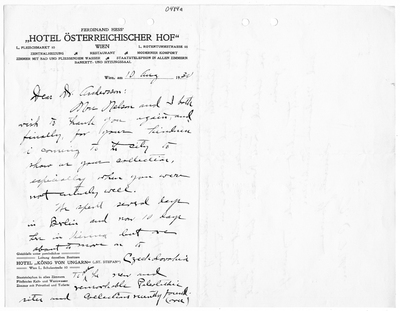 0484a
FERDINAND HESS'
„HOTEL ÖSTERREICHISCHER HOF“
I., FLEISCHMARKT
WIEN
I., ROTENTURMSTRASSE
ZENTRALHEIZUNG
RESTAURANT
MODERNER KOMFORT
ZIMMER MIT BAD UND FLIESSENDEM WASSER
STAATSTELEPHON IN ALLEN ZIMMERN
BANKETT- UND SITZUNGSSAAL
Wien, am 10 Aug
Dear Dr. Andersson:
Mrs. Nelson and I both
wish to thank you again and
finally for your kindness
in coming to the city to
show us your collection,
especially when you were
not entirely well.
We spent several days
in Berlin and now 10 days
here in Vienna but are
about to move on to
Czechoslovakia
HOTEL „KÖNIG VON UNGARN“
Wien I., Schulerstraße 10
to the new and
remarkable Paleolithic
sites and collections recently found